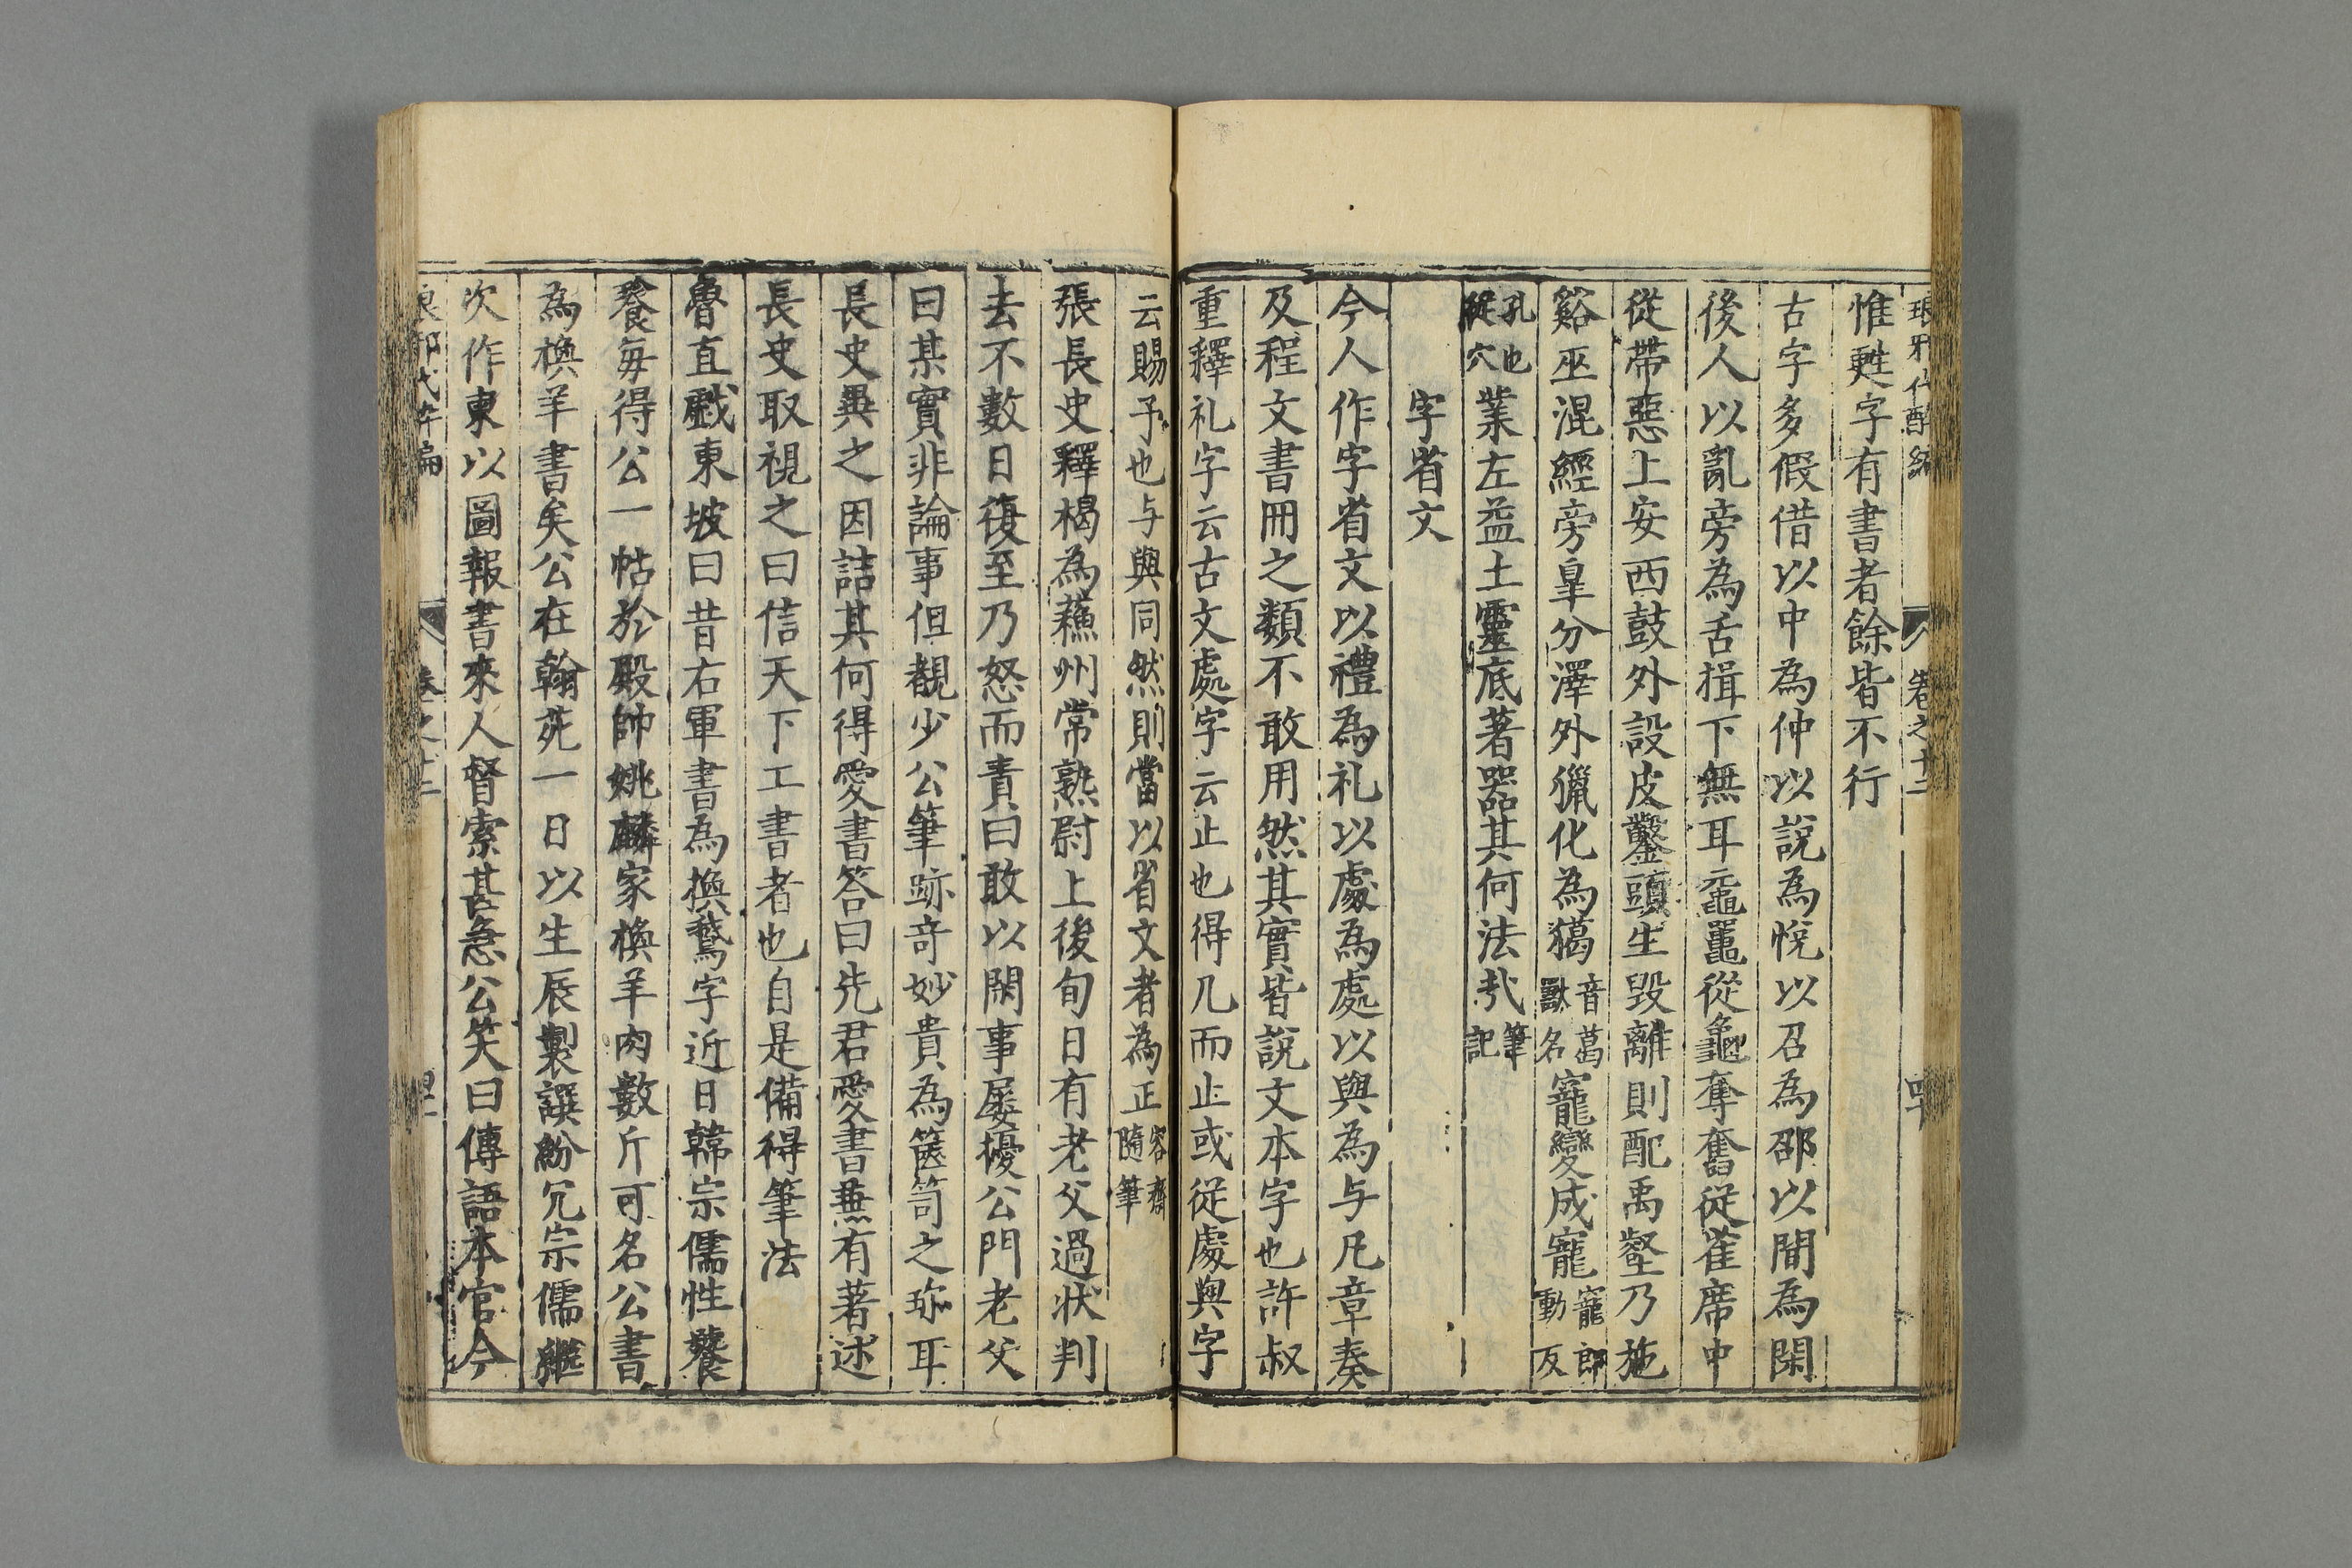 琅邪代醉編 卷之十二 四十
惟甦字有書者餘皆不行
古字多假借以中為仲以說為悅以召為邵以閒為閑
後人以亂旁為舌揖下無耳黿鼉從龜奪奮從雀席中
從帶惡上安西鼓外設皮鑿頭生毀離則配禹壑乃施
谿巫混經旁皐分澤外獵化為獦音葛獸名寵變成竉竉郎動反
孔也從穴業左益土靈底著器其何法㢤筆記
字省文
今人作字省文以禮為礼以處為處以與為与凡章奏
及程文書冊之類不敢用然其實皆說文本字也許叔
重釋礼字云古文處字云止也得几而止或從處與字
云賜予也与與同然則當以省文者為正容齋隨筆
張長史釋褐為蘓州常熟尉上後旬日有老父過狀判
去不數日復至乃怒而責曰敢以閑事屢擾公門老父
曰某實非論事但覩少公筆跡奇妙貴為篋笥之珎耳
長史異之因詰其何得愛書答曰先君愛書兼有著述
長史取視之曰信天下工書者也自是備得筆法
魯直戲東坡曰昔右軍書為換鵞字近日韓宗儒性饕
餮每得公一帖於殿帥姚麟家換羊肉數斤可名公書
為換羊書矣公在翰苑一日以生辰製譔紛冗宗儒繼
次作柬以圖報書來人督索甚急公笑曰傳語本官今